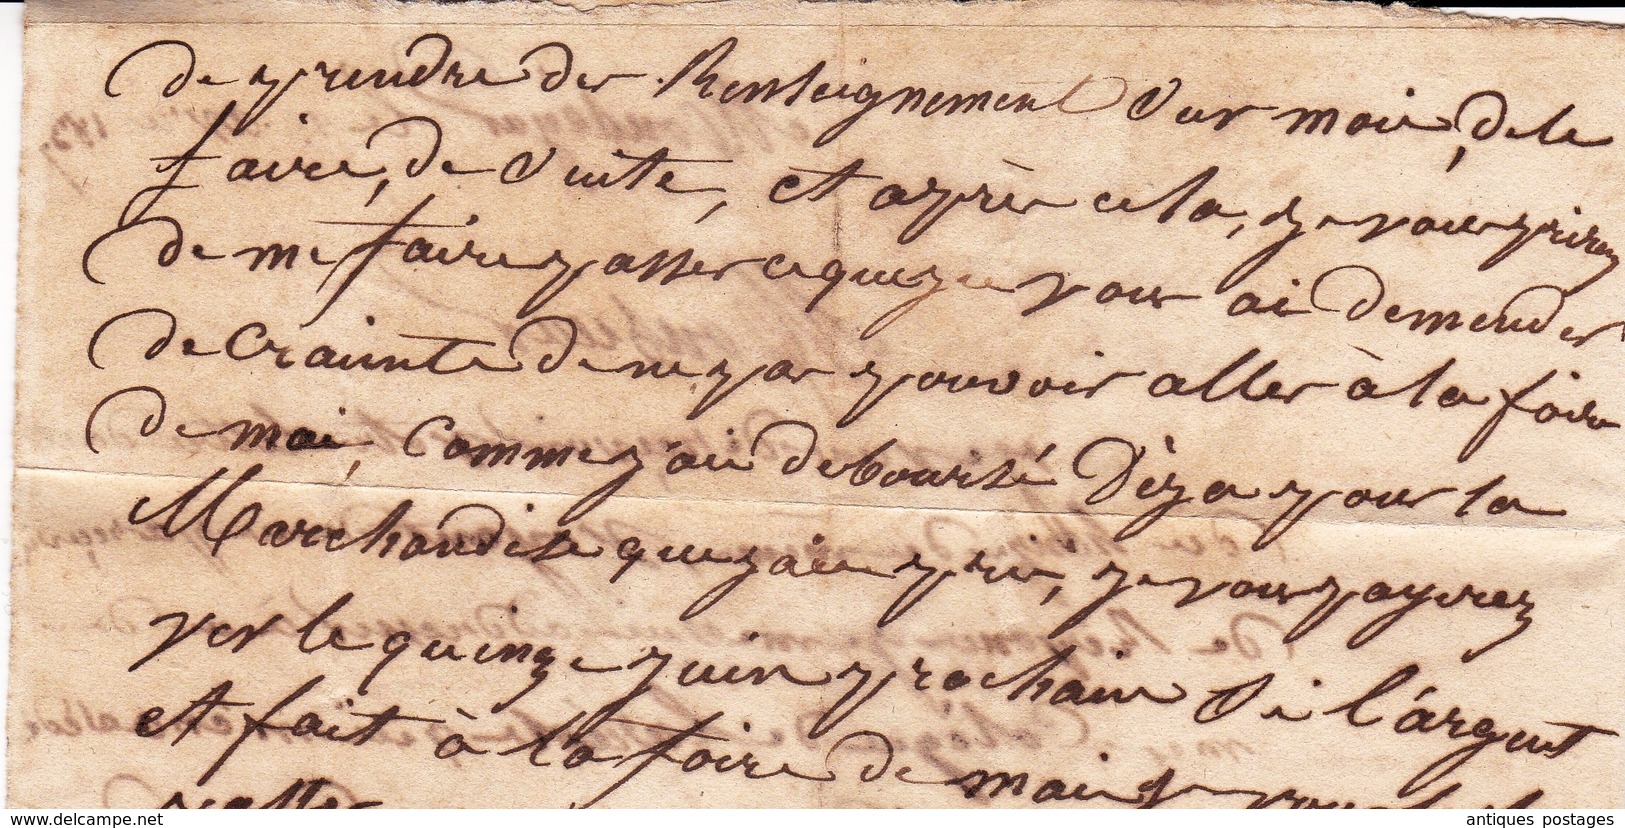 de prendre des Renseignement Sur moi, de le
faire, de Suite, et après cela, je vous prirez
de me faire passer ce que je vous ai demender
de Crainte de ne pas pouvoir aller à la foire
de mai, Comme j'ai debourse Déja pour la
Marchandise que j'ai pris, je vous payerez
ver le quinze juin prochain Si l'argent
et fait à la foire de mai je vous
www.delcampe.net
antiques postages